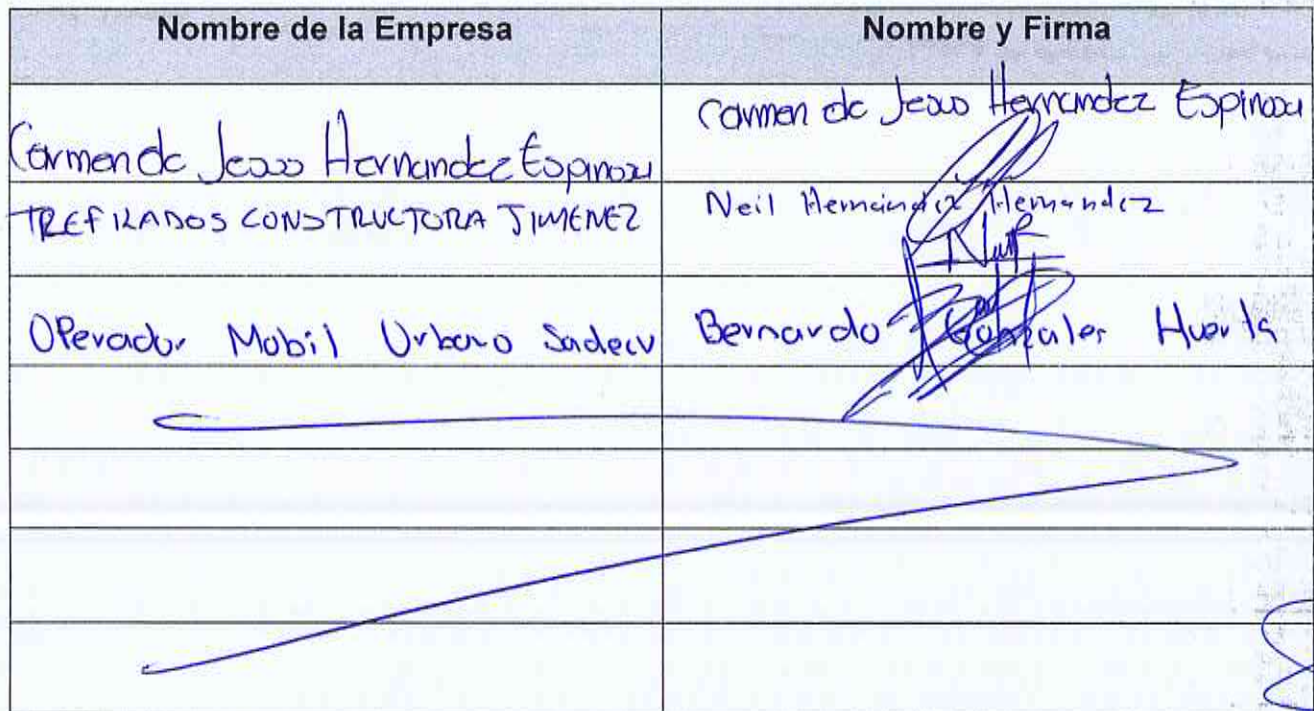 Nombre de la Empresa Nombre y Firma
Carmen de Jesus Hernandez Espinosa Carmen de Jesus Hernandez Espinosa
TREFILADOS CONSTRUCTORA JIMENEZ Neil Hernandez Hernandez
Operador Mobil Urbano Sadecv Bernardo Gonzalez Huerta